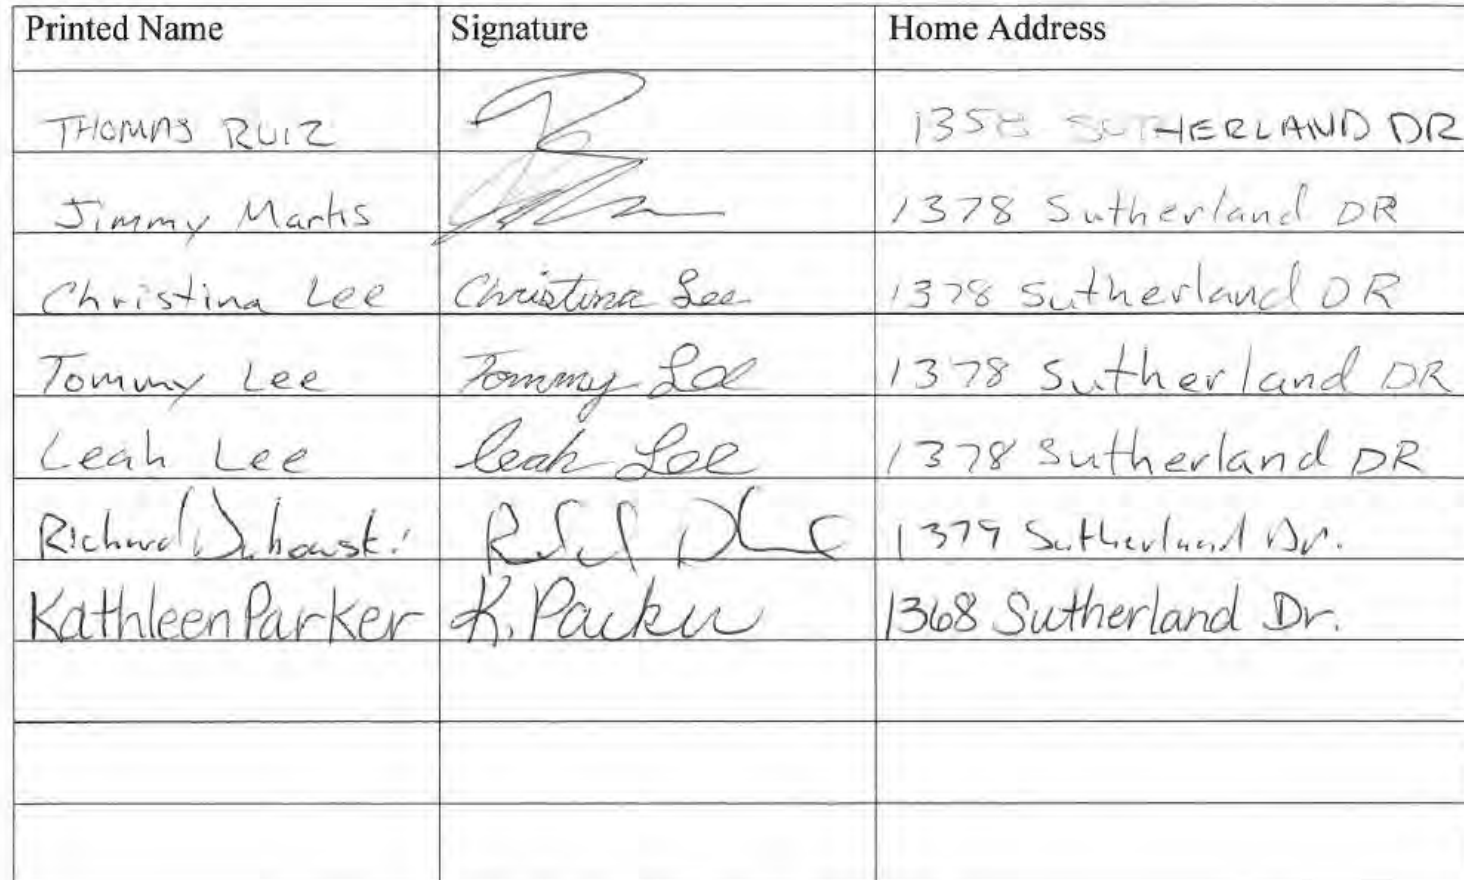 Printed Name Signature Home Address
THOMAS RUIZ 1358 SUTHERLAND DR
Jimmy 1378 Sutherland DR
Christina Lee Christina Lee 1378 Sutherland DR
Tommy Lee Tommy Lee 1378 Sutherland DR
Leah Lee Leah Lee 1378 Sutherland DR
Richard 1379 Sutherland Dr.
Kathleen Parker K. Parker 1368 Sutherland Dr.